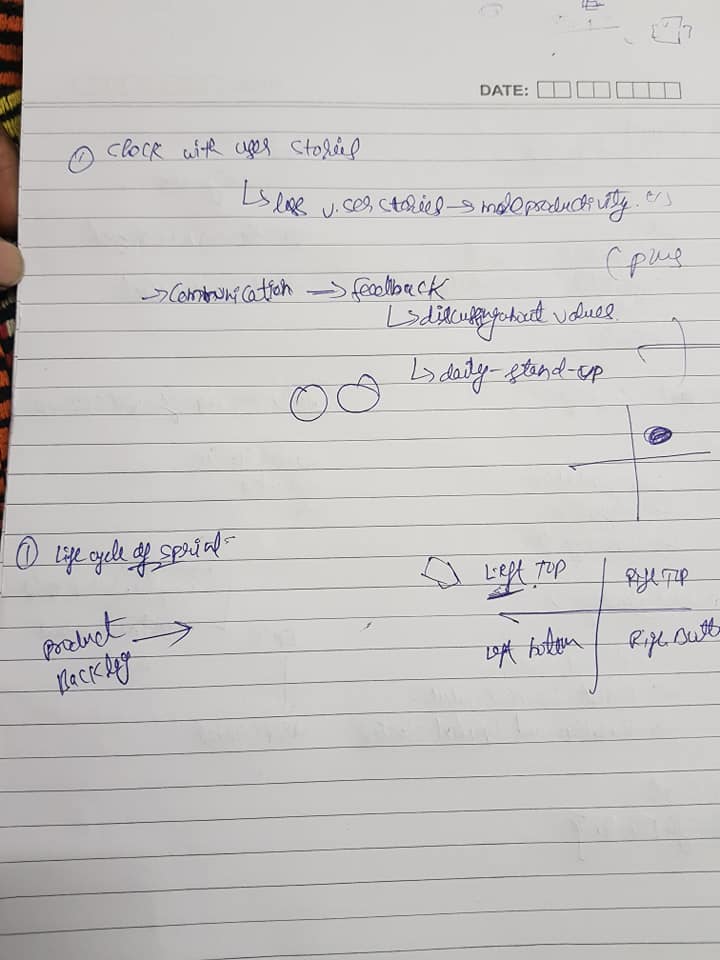 DATE:
① Clock with user stories
↳ less user stories → more productivity.
(plus
→ Communication → feedback
↳ discussing about values.
↳ daily-stand-up
① Life cycle of sprint =
Left TOP Right TOP
Product →
Backlog
Left bottom Right Butt